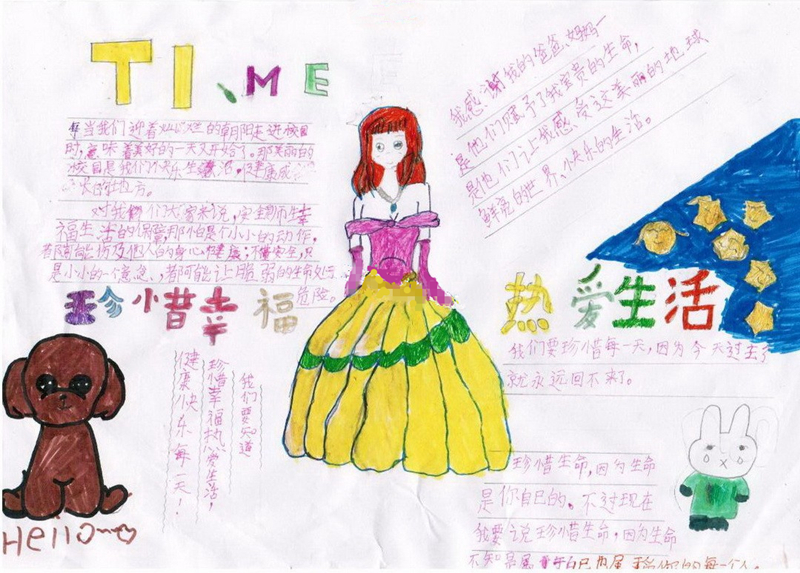 TI、ME
当我们迎着灿烂的朝阳走进校园
时,意味着美好的一天又开始了。那美丽的
校园是我们快乐生活,健康成
长的地方。
对我们大家来说,安全是幸
福生活的保障,哪怕是个小小的动作,
都可能伤及他人的身心健康;只
是小小的一个意念,都可能让脆弱的生命处于
危险。
我感谢我的爸爸、妈妈一
是他们赐予了我宝贵的生命,
是他们让我感受这美丽的地球
鲜亮的世界、快乐的生活。
珍惜幸福
我们要知道
珍惜幸福热爱生活,
健康快乐每一天!
Hello~
热爱生活
我们要珍惜每一天,因为今天过去了
就永远回不来了。
珍惜生命,因为生命
是你自己的。不过现在
我要说珍惜生命,因为生命
不知是属于自己也属于你的每一个人。